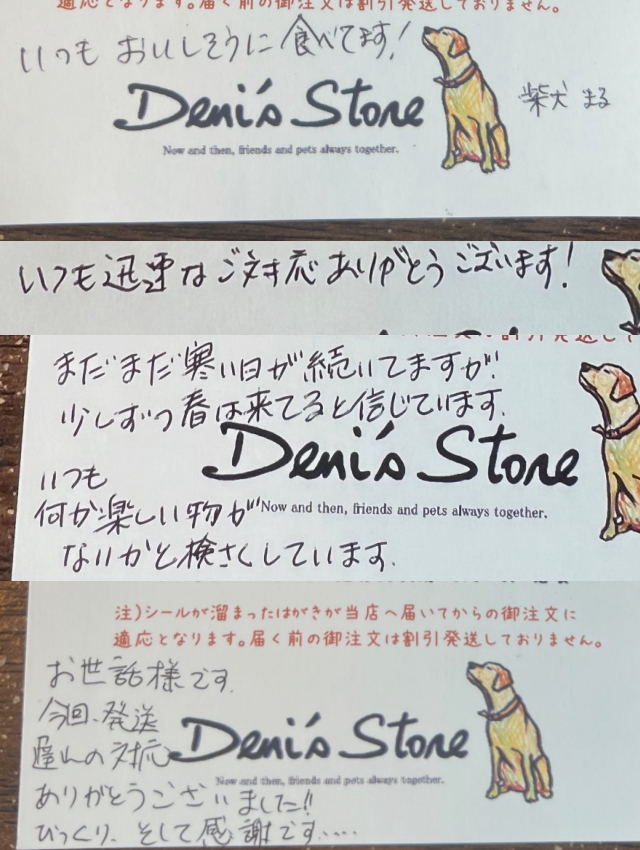 適応となります。届く前の御注文は割引発送しておりません。
いつも おいしそうに 食べてます!
Deni's Store
柴犬 まる
Now and then, friends and pets always together.
いつも迅速なご対応ありがとうございます!
まだまだ寒い日が続いてますが
少しずつ春は来てると信じています.
Deni's Store
いつも
何か楽しい物が
Now and then, friends and pets always together.
ないかと検さくしています.
注)シールが溜まったはがきが当店へ届いてからの御注文に
適応となります。届く前の御注文は割引発送しておりません。
お世話様です.
今回、発送
の対応
Deni's Store
Now and then, friends and pets always together.
ありがとうございました!!
びっくり、そして感謝です.....